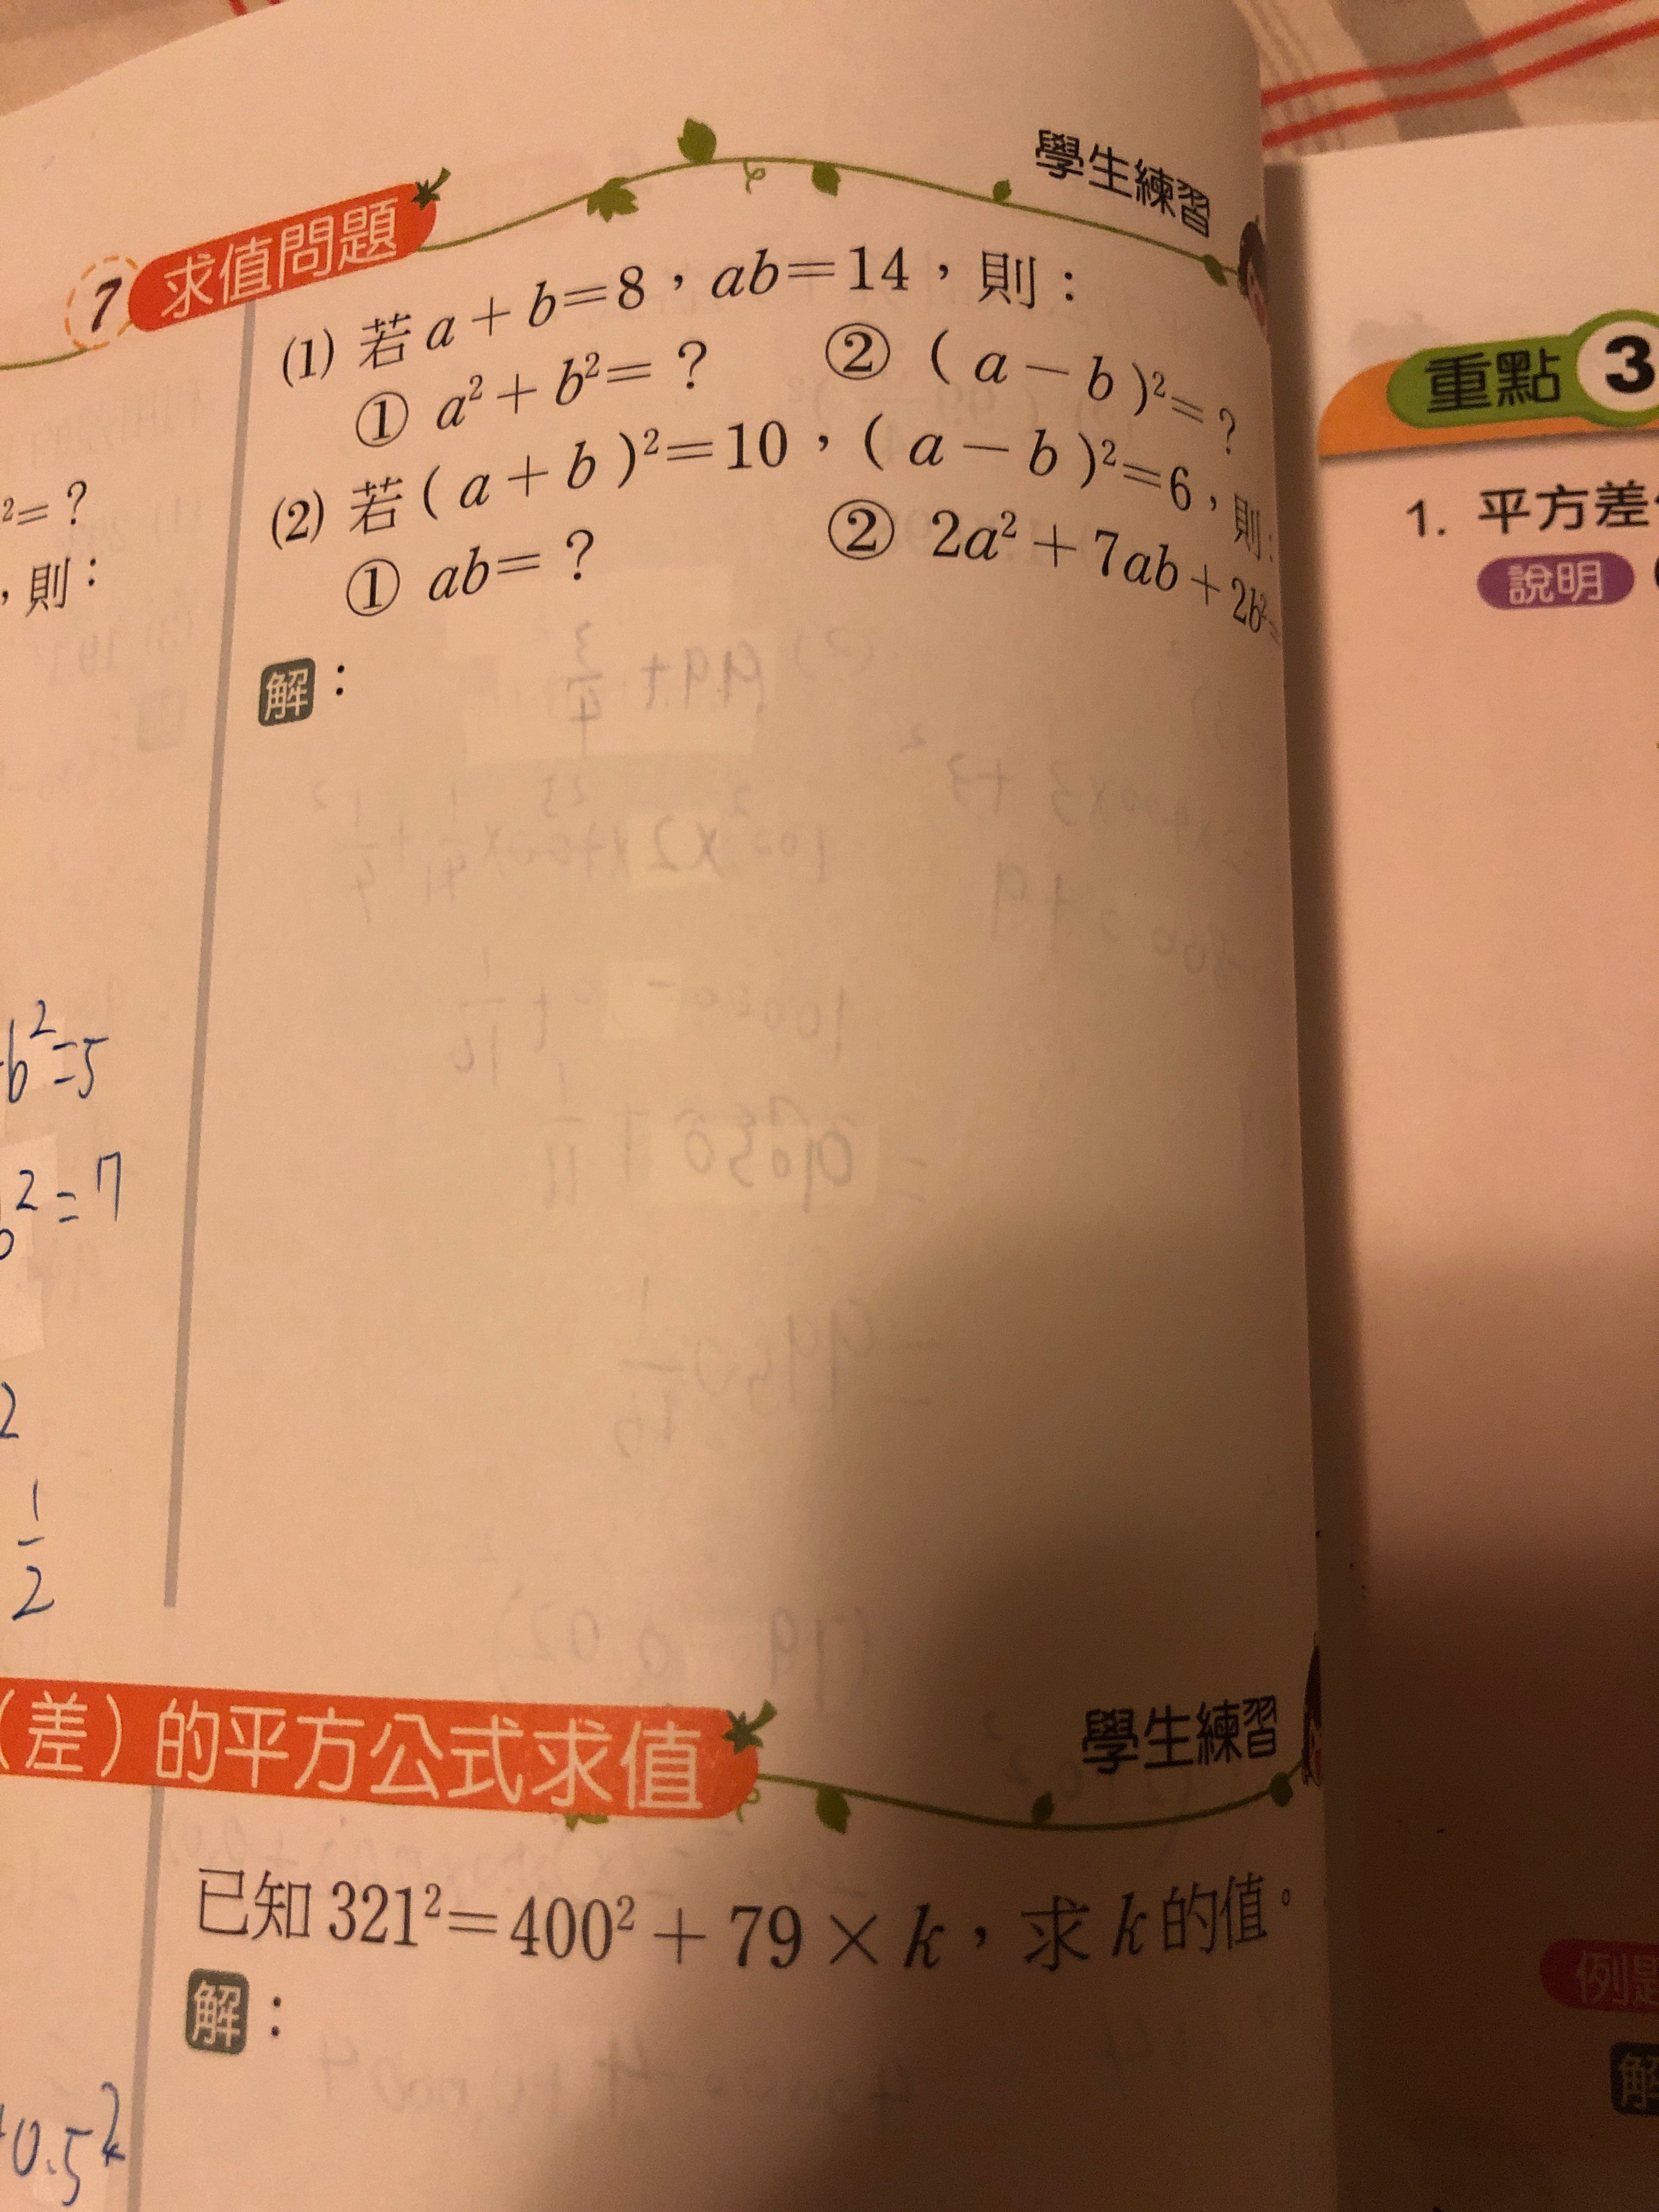 學生練習
7 求值問題
(1) 若 a + b = 8，ab = 14，則：
① a² + b² = ？ ② ( a − b )² = ？
(2) 若 ( a + b )² = 10，( a − b )² = 6，則：
① ab = ？ ② 2a² + 7ab + 2b² =
解：
² = ？
，則：
b² = 5
² = 7
2
1/2
（差）的平方公式求值
學生練習
已知 321² = 400² + 79 × k，求 k 的值。
解：
0.5²
重點 3
1. 平方差
說明
例題
解